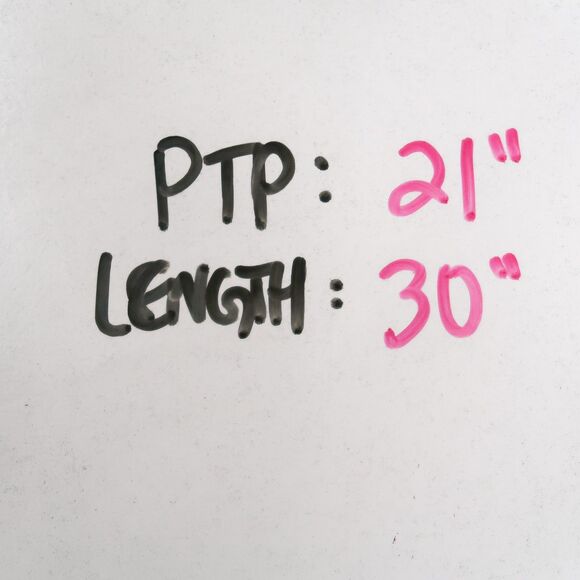 PTP: 21"
LENGTH: 30"